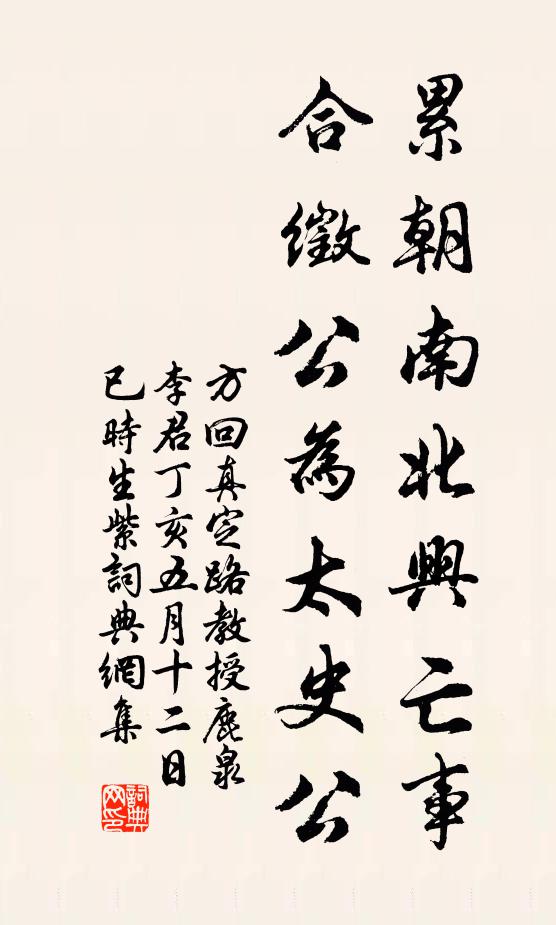 累朝南北興亡事
合徵公為太史公
方回真定路教授鹿泉
李君丁亥五月十二日
已時生紫詞典網集
詞典网印